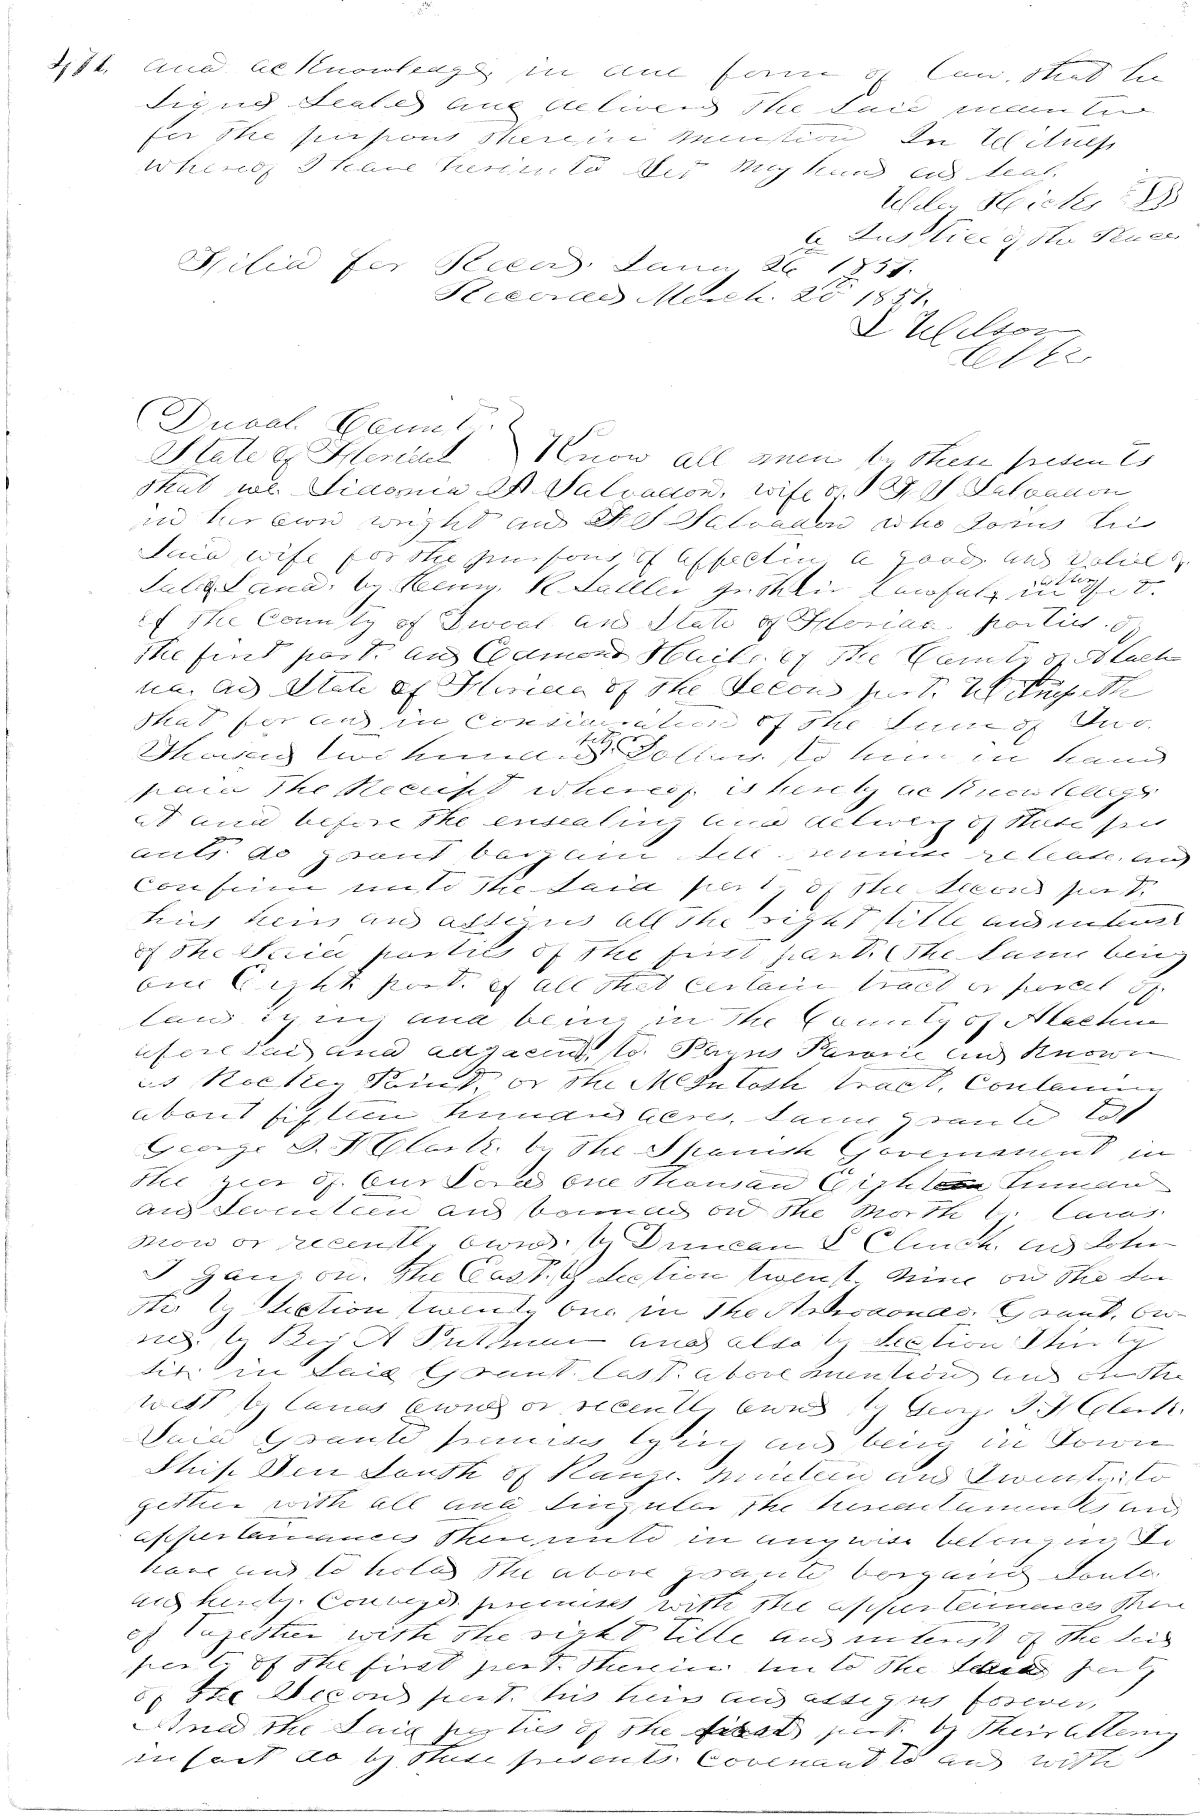 and acknowledged in due form of law. that he
signed sealed and delivered the said
for the purpous therein mention In Witness
whereof I have hereunto Set My hand and seal.
Hicks
a Justice of the Peace
Filid for Record. Januy 26 1857.
Recorded March. 20th 1857.
L Wilson
Clk
Duval County.
State of Florida Know all men by these presents
that we. Sidonia A Salvadon. wife of F S Salvadon
in her own wright and F S Salvadon who Joins his
Said wife for the purpous of affecting a good and Valid
Sale Land. by Henry. R Sadler for their lawful attorney in
of the County of Duval and State of Florida. parties. of
the first part. and Edmond Haile. of the County of Alach
ua. and State of Florida of the Second part. Witnesseth
that for and in consideration of the Sum of Two.
Thousand two hundred fifty Dollars. to him in hand
paid the Receipt whereof. is hereby acknowledged
at and before the ensealing and delivery of these pres
ants. do grant bargain sell. remise release. and
confirm unto the said party of the second part.
his heirs and assigns all the right title and interest
of the Said parties of the first part. (the same being
one Eight part. of all that certain tract or parcel of.
land lying and being in the County of Alachua
afore said and adjacent. to. Payns Prairie and known
as Rockey Point. or the McIntosh tract. Containing
about fifteen hundred acres. Same granted to
George I. F Clark. by the Spanish Government in
the year of. our Lord one thousand Eight hundred
and Seventeen and bounded on the North by. lands.
now or recently owned. by Duncan L Clinch. and John
on. the East. by Section twenty Nine on the Sou
th. by Section twenty one in the Arrodondo. Grant. ow-
ned. by Benj A Putnam and also by Section Thirty
six. in Said Grant. last. above mention and on the
West by lands owned or recently owned by George I. F Clark.
Said Granted premises lying and being in Town
Ship Ten South of Range. Nineteen and Twenty. to
gether with all and singular the hereditaments and
appertainances thereunto in anywise belonging To
have and to hold the above granted bargained
and hereby. Conveyed premises with the appertainances there
of Together with the right title and interest of the said
party of the first part. therein. unto the said party
of the Second part. his heirs and assigns forever,
And the Said parties of the first part. by their attorney
in fact do by these presents. covenant to and with